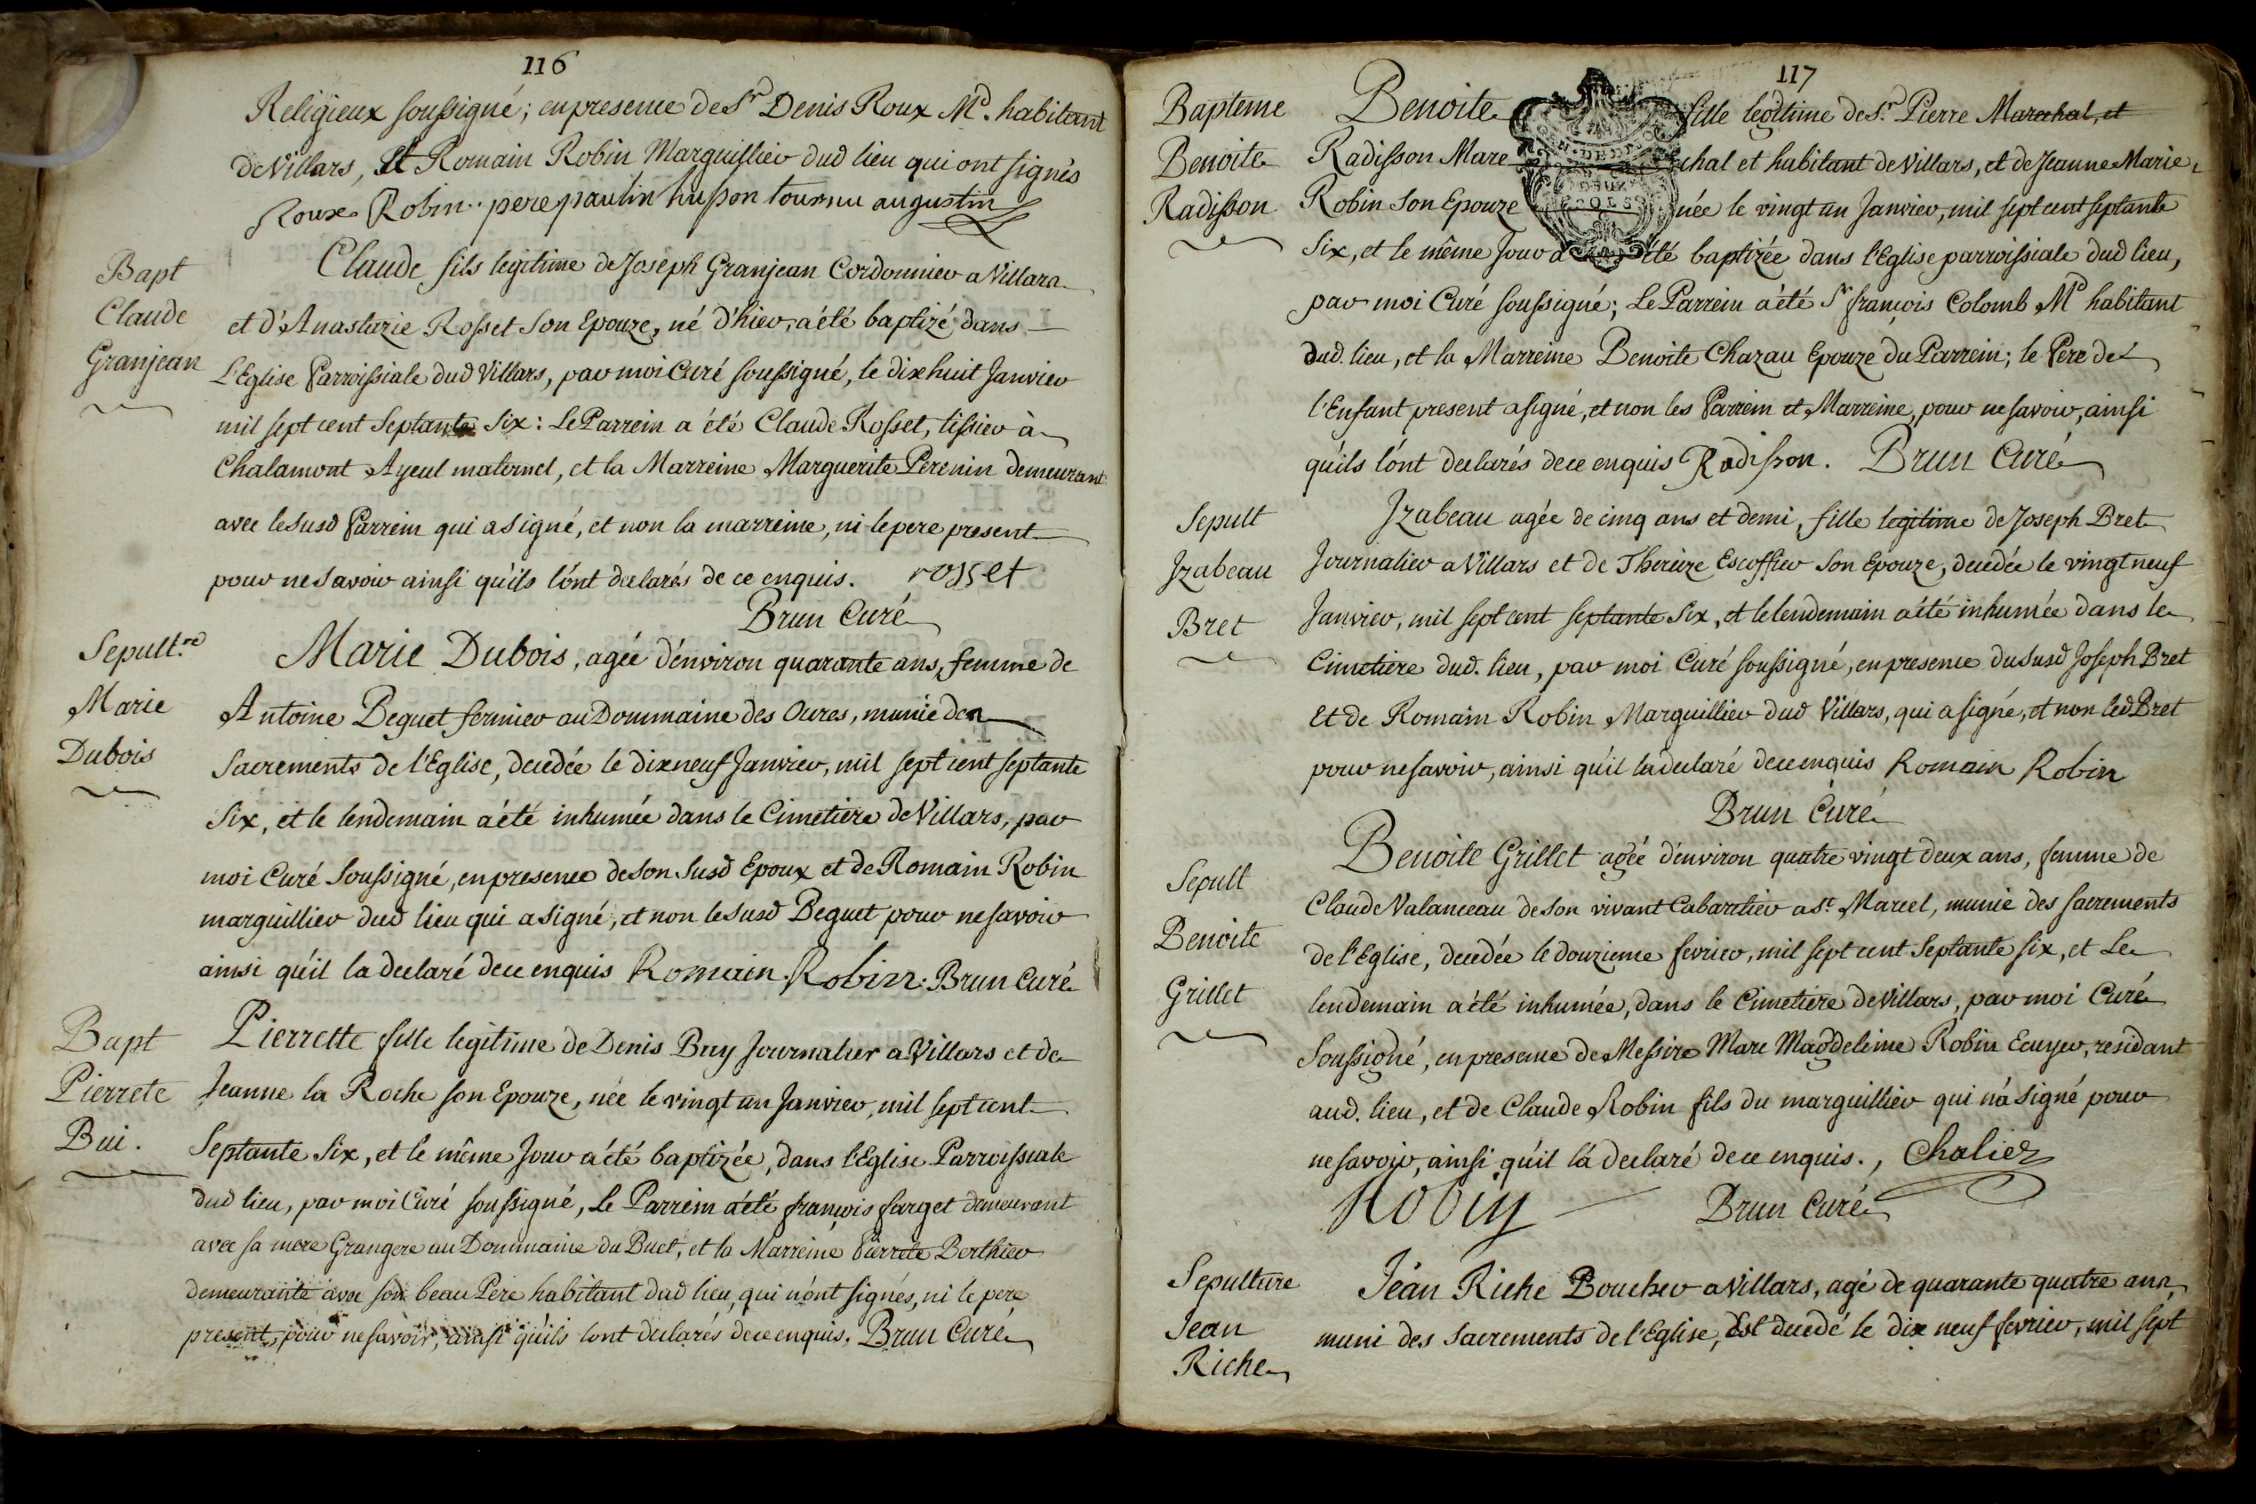 116
Religieux soussigné; en presence de Sr Denis Roux Md. habitant
de Villars, et Romain Robin Marguillier dud lieu qui ont signés
Roux Robin.. pere paulin husson tournu augustin
Bapt
Claude
Granjean
Claude fils legitime de Joseph Granjean Cordonnier a Villars
et d'Anastazie Rosset Son Epouze, né d'hier, a été baptizé dans
L'Eglise Parroissiale dud Villars, par moi Curé soussigné, le dix huit Janvier
mil sept cent Septante Six: Le Parrein a été Claude Rosset, tissier à
Chalamont Ayeul maternel, et la Marreine Marguerite Perenin demeurant
avec le susd Parrein qui a signé, et non la marreine, ni le pere present
pour ne savoir ainsi qu'ils l'ont declarés de ce enquis. rosset
Brun Curé
Sepult.re
Marie
Dubois
Marie Dubois, agée d'environ quarante ans, femme de
Antoine Beguet fermier au Dommaine des Oures, munie des
Sacrements de l'Eglise, decedée le dix neuf Janvier, mil sept cent septante
Six, et le lendemain a été inhumée dans le Cimetiere de Villars, par
moi Curé Soussigné, en presence de son Susd Epoux et de Romain Robin
marguillier dud lieu qui a signé, et non le susd Beguet pour ne savoir
ainsi qu'il la declaré de ce enquis Romain Robin. Brun Curé
Bapt
Pierrete
Bui.
Pierrette fille legitime de Denis Buy Journalier a Villars et de
Jeanne la Roche son Epouze, née le vingt un Janvier, mil sept cent
Septante Six, et le même Jour a été baptizée, dans l'Eglise Parroissiale
dud lieu, par moi Curé soussigné, Le Parrein a été françois farget demeurant
avec sa mere Grangere au Dommaine du Buet, et la Marreine Pierrete Berthier
demeurante avec son beau Pere habitant dud lieu, qui n'ont signés, ni le pere
present, pour ne savoir, ainsi qu'ils l'ont declarés de ce enquis. Brun Curé
117
Bapteme
Benoite
Radisson
Benoite fille legitime de Sr. Pierre Marechal, et
Radisson Mare chal et habitant de Villars, et de Jeanne Marie
Robin Son Epouze née le vingt un Janvier, mil sept cent septante
Six, et le même Jour a été baptizée dans l'Eglise parroissiale dud lieu,
par moi Curé soussigné; Le Parrein a été Sr françois Colomb Md habitant
dud. lieu, et la Marreine Benoite Chazau Epouze du Parrein; le Pere de
l'Enfant present a signé, et non les Parrein et Marreine, pour ne savoir, ainsi
qu'ils l'ont declarés de ce enquis Radisson. Brun Curé
Sepult
Izabeau
Bret
Izabeau agée de cinq ans et demi, fille legitime de Joseph Bret
Journalier a Villars et de Thereze Escoffier Son Epouze, decedée le vingt neuf
Janvier, mil sept cent septante Six, et le lendemain a été inhumée dans le
Cimetiere dud. lieu, par moi Curé soussigné, en presence du susd Joseph Bret
et de Romain Robin Marguillier dud Villars, qui a signé, et non led Bret
pour ne savoir, ainsi qu'il la declaré de ce enquis Romain Robin
Brun Curé
Sepult
Benoite
Grillet
Benoite Grillet agée d'environ quatre vingt deux ans, femme de
Claude Valanceau de son vivant Cabaretier a St. Marcel, munie des sacrements
de l'Eglise, decedée le douzieme fevrier, mil sept cent Septante six, et Le
lendemain a été inhumée, dans le Cimetiere de Villars, par moi Curé
Soussigné, en presence de Messire Marc Magdeleine Robin Ecuyer, residant
aud. lieu, et de Claude Robin fils du marguillier qui n'a signé pour
ne savoir, ainsi qu'il l'a declaré de ce enquis., Chalier
Robin Brun Curé
Sepulture
Jean
Riche
Jean Riche Boucher a Villars, agé de quarante quatre ans,
muni des Sacrements de l'Eglise, Est decedé le dix neuf fevrier, mil sept